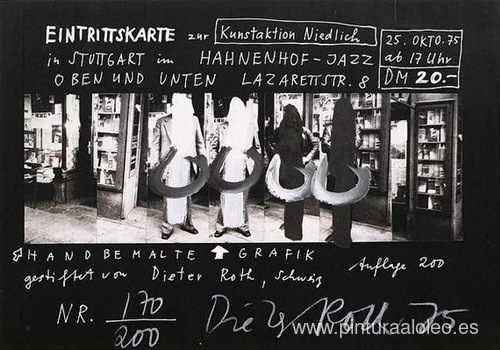 EINTRITTSKARTE zur Kunstaktion Niedlich
in STUTTGART im HAHNENHOF-JAZZ
OBEN UND UNTEN LAZARETTSTR. 8
25. OKTO. 75
ab 17 Uhr
DM 20.-
HANDBEMALTE GRAFIK
gestiftet von Dieter Roth, Schweiz
Auflage 200
NR. 170/200
Dieter Roth 75
www.pinturaaloleo.es